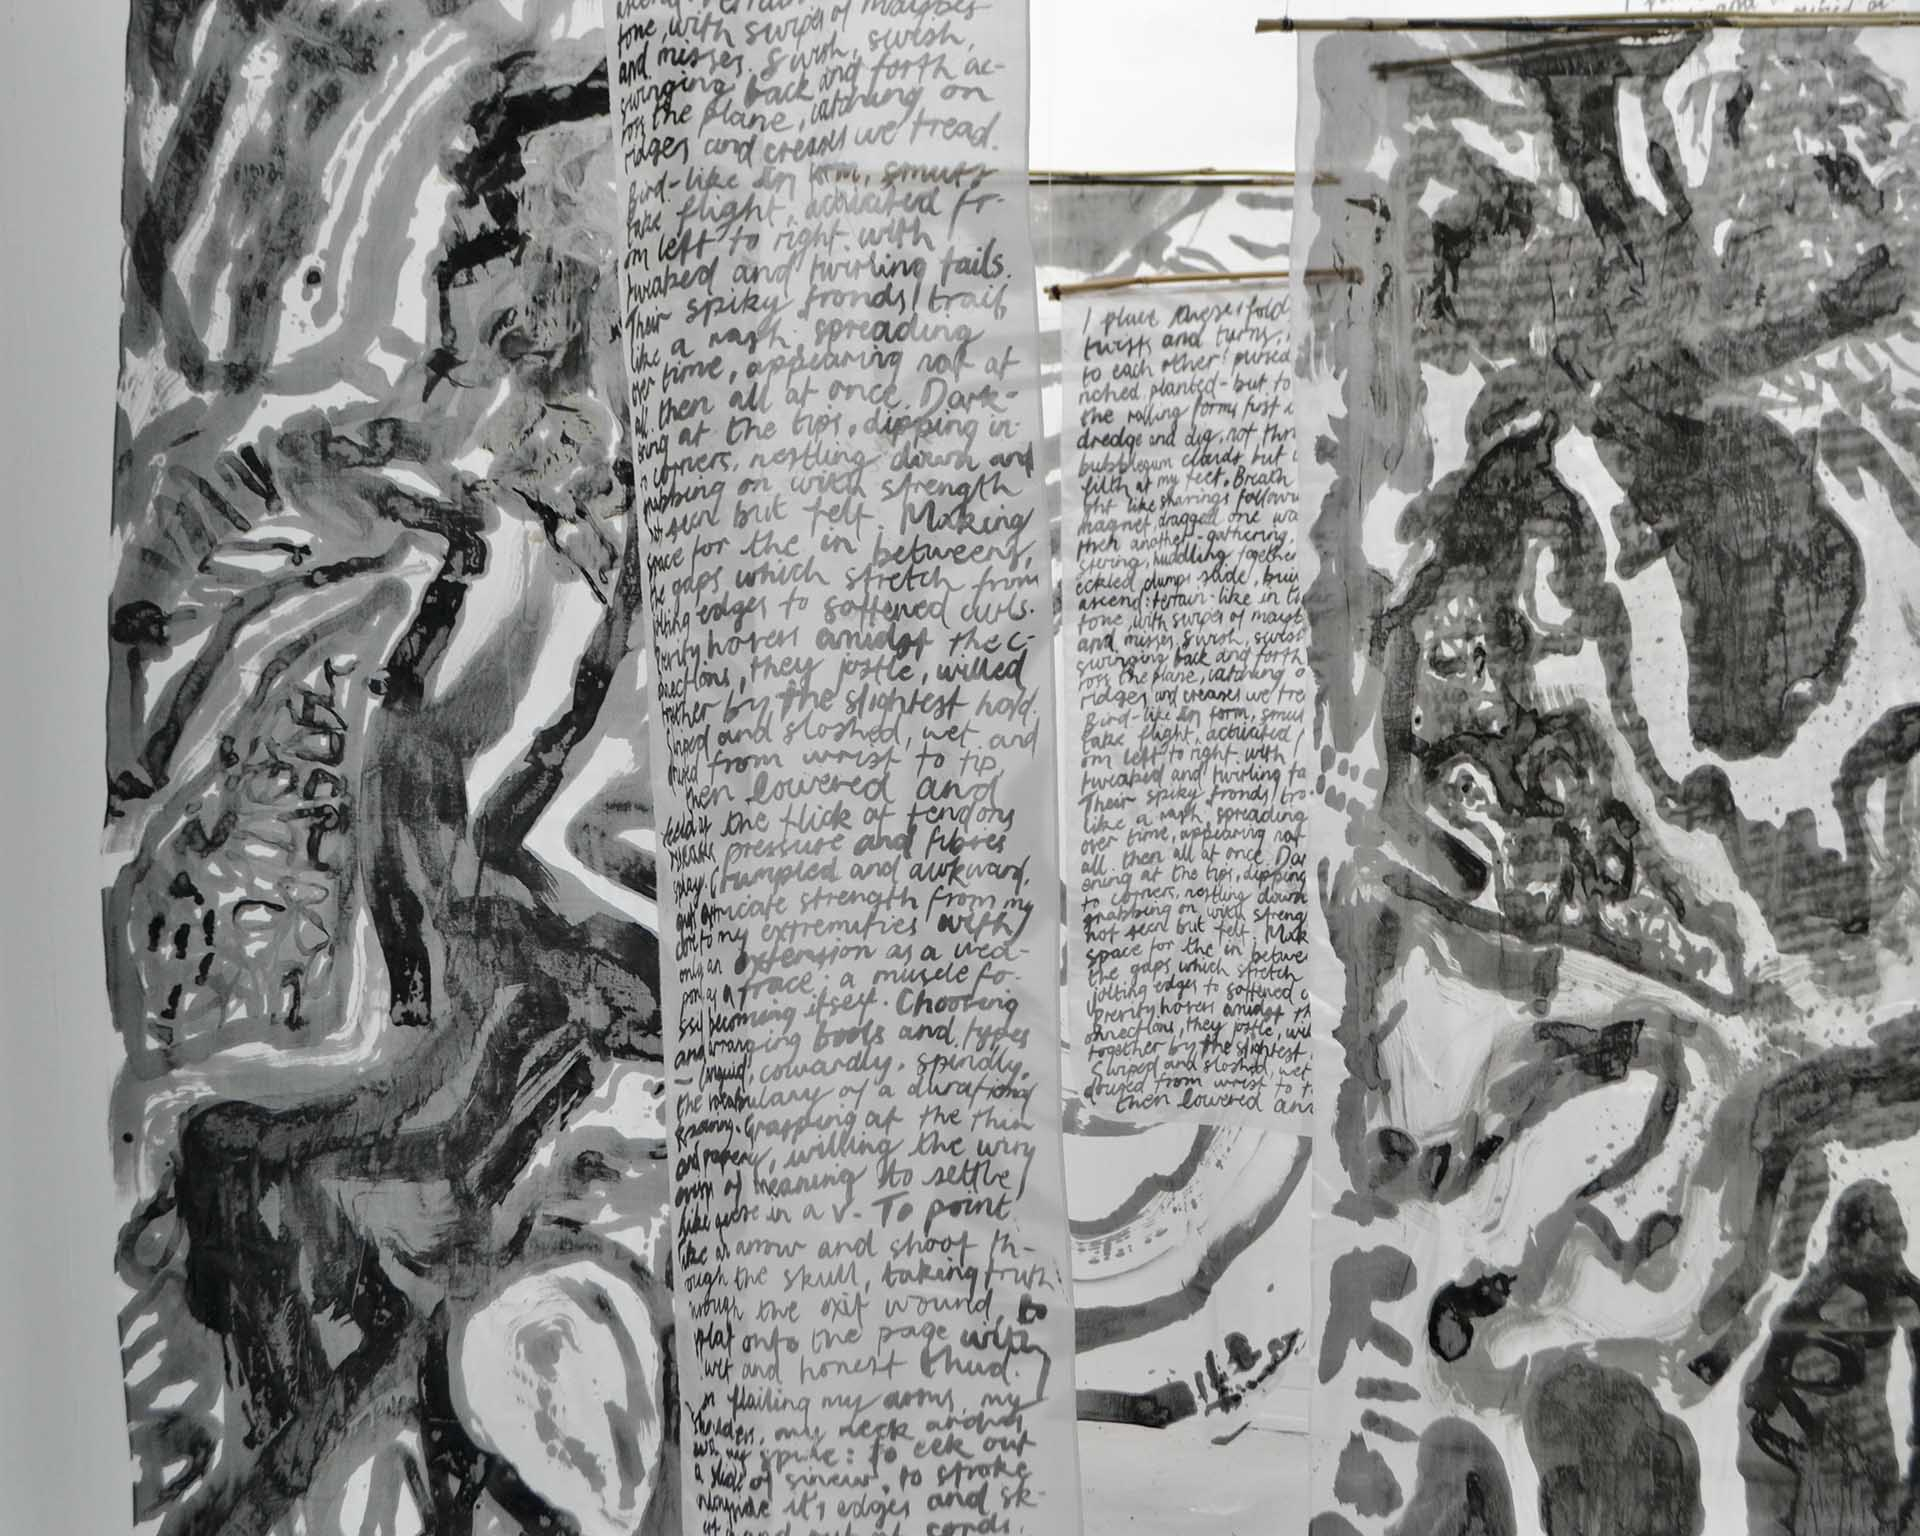 tone, with swipes of maybes
and misses. Swish, swish,
swinging back and forth ac-
ross the plane, catching on
ridges and creases we tread.
Bird-like in form, smuts
take flight, activated fr-
om left to right with
tweaked and twirling tails.
Their spiky fronds trail
like a rash, spreading
over time, appearing not at
all, then all at once. Dark-
ening at the tips, dipping in
corners, nestling down and
grabbing on with strength
not seen but felt. Making
space for the in betweens,
the gaps which stretch from
jolting edges to softened curls.
hovers amidst the c-
onnections, they jostle, willed
together by the slightest hold.
Swiped and sloshed, wet and
from wrist to tip,
then lowered and
the flick of tendons
pressure and fibres
splay. Crumpled and awkward,
strength from my
core to my extremities with
only an extension as a wea-
pon as a trace: a muscle fo-
becoming itself. Choosing
and arranging tools and types
— languid, cowardly, spindly,
the vocabulary of a durational
Grasping at the thin
and papery, willing the wiry
of meaning to settle
like geese in a v. To point
like an arrow and shoot th-
rough the skull, taking truth
through the exit wound, to
splat onto the page with
wet and honest thud.
flailing my arms, my
shoulders, my neck
my spine: to eek out
a slide of sinew, to stroke
alongside it's edges and sk-
and out at cords.
I place these fold
twists and turns,
to each other: pursed
planted - but to
the rolling forms first
dredge and dig, not thr
bubblegum clouds but
filth at my feet. Breath
ght like shavings followi
magnet dragged one wa
then another - gathering,
huddling together
eckled clumps slide, brui
ascend: terrain-like in
tone, with swipes of mayb
and misses. Swish, swish
swinging back and forth
ross the plane, catching o
ridges and creases we tre
Bird-like in form, smut
take flight, activated
om left to right with
tweaked and twirling ta
Their spiky fronds tra
like a rash, spreading
over time, appearing not
all, then all at once. Dar
ening at the tips, dipping
to corners, nestling down
grabbing on with streng
not seen but felt. Mak
space for the in betwe
the gaps which stretch
jolting edges to softened c
hovers amidst th
onnections, they jostle, wil
together by the slightest
Swiped and sloshed, wet
doused from wrist to t
then lowered an